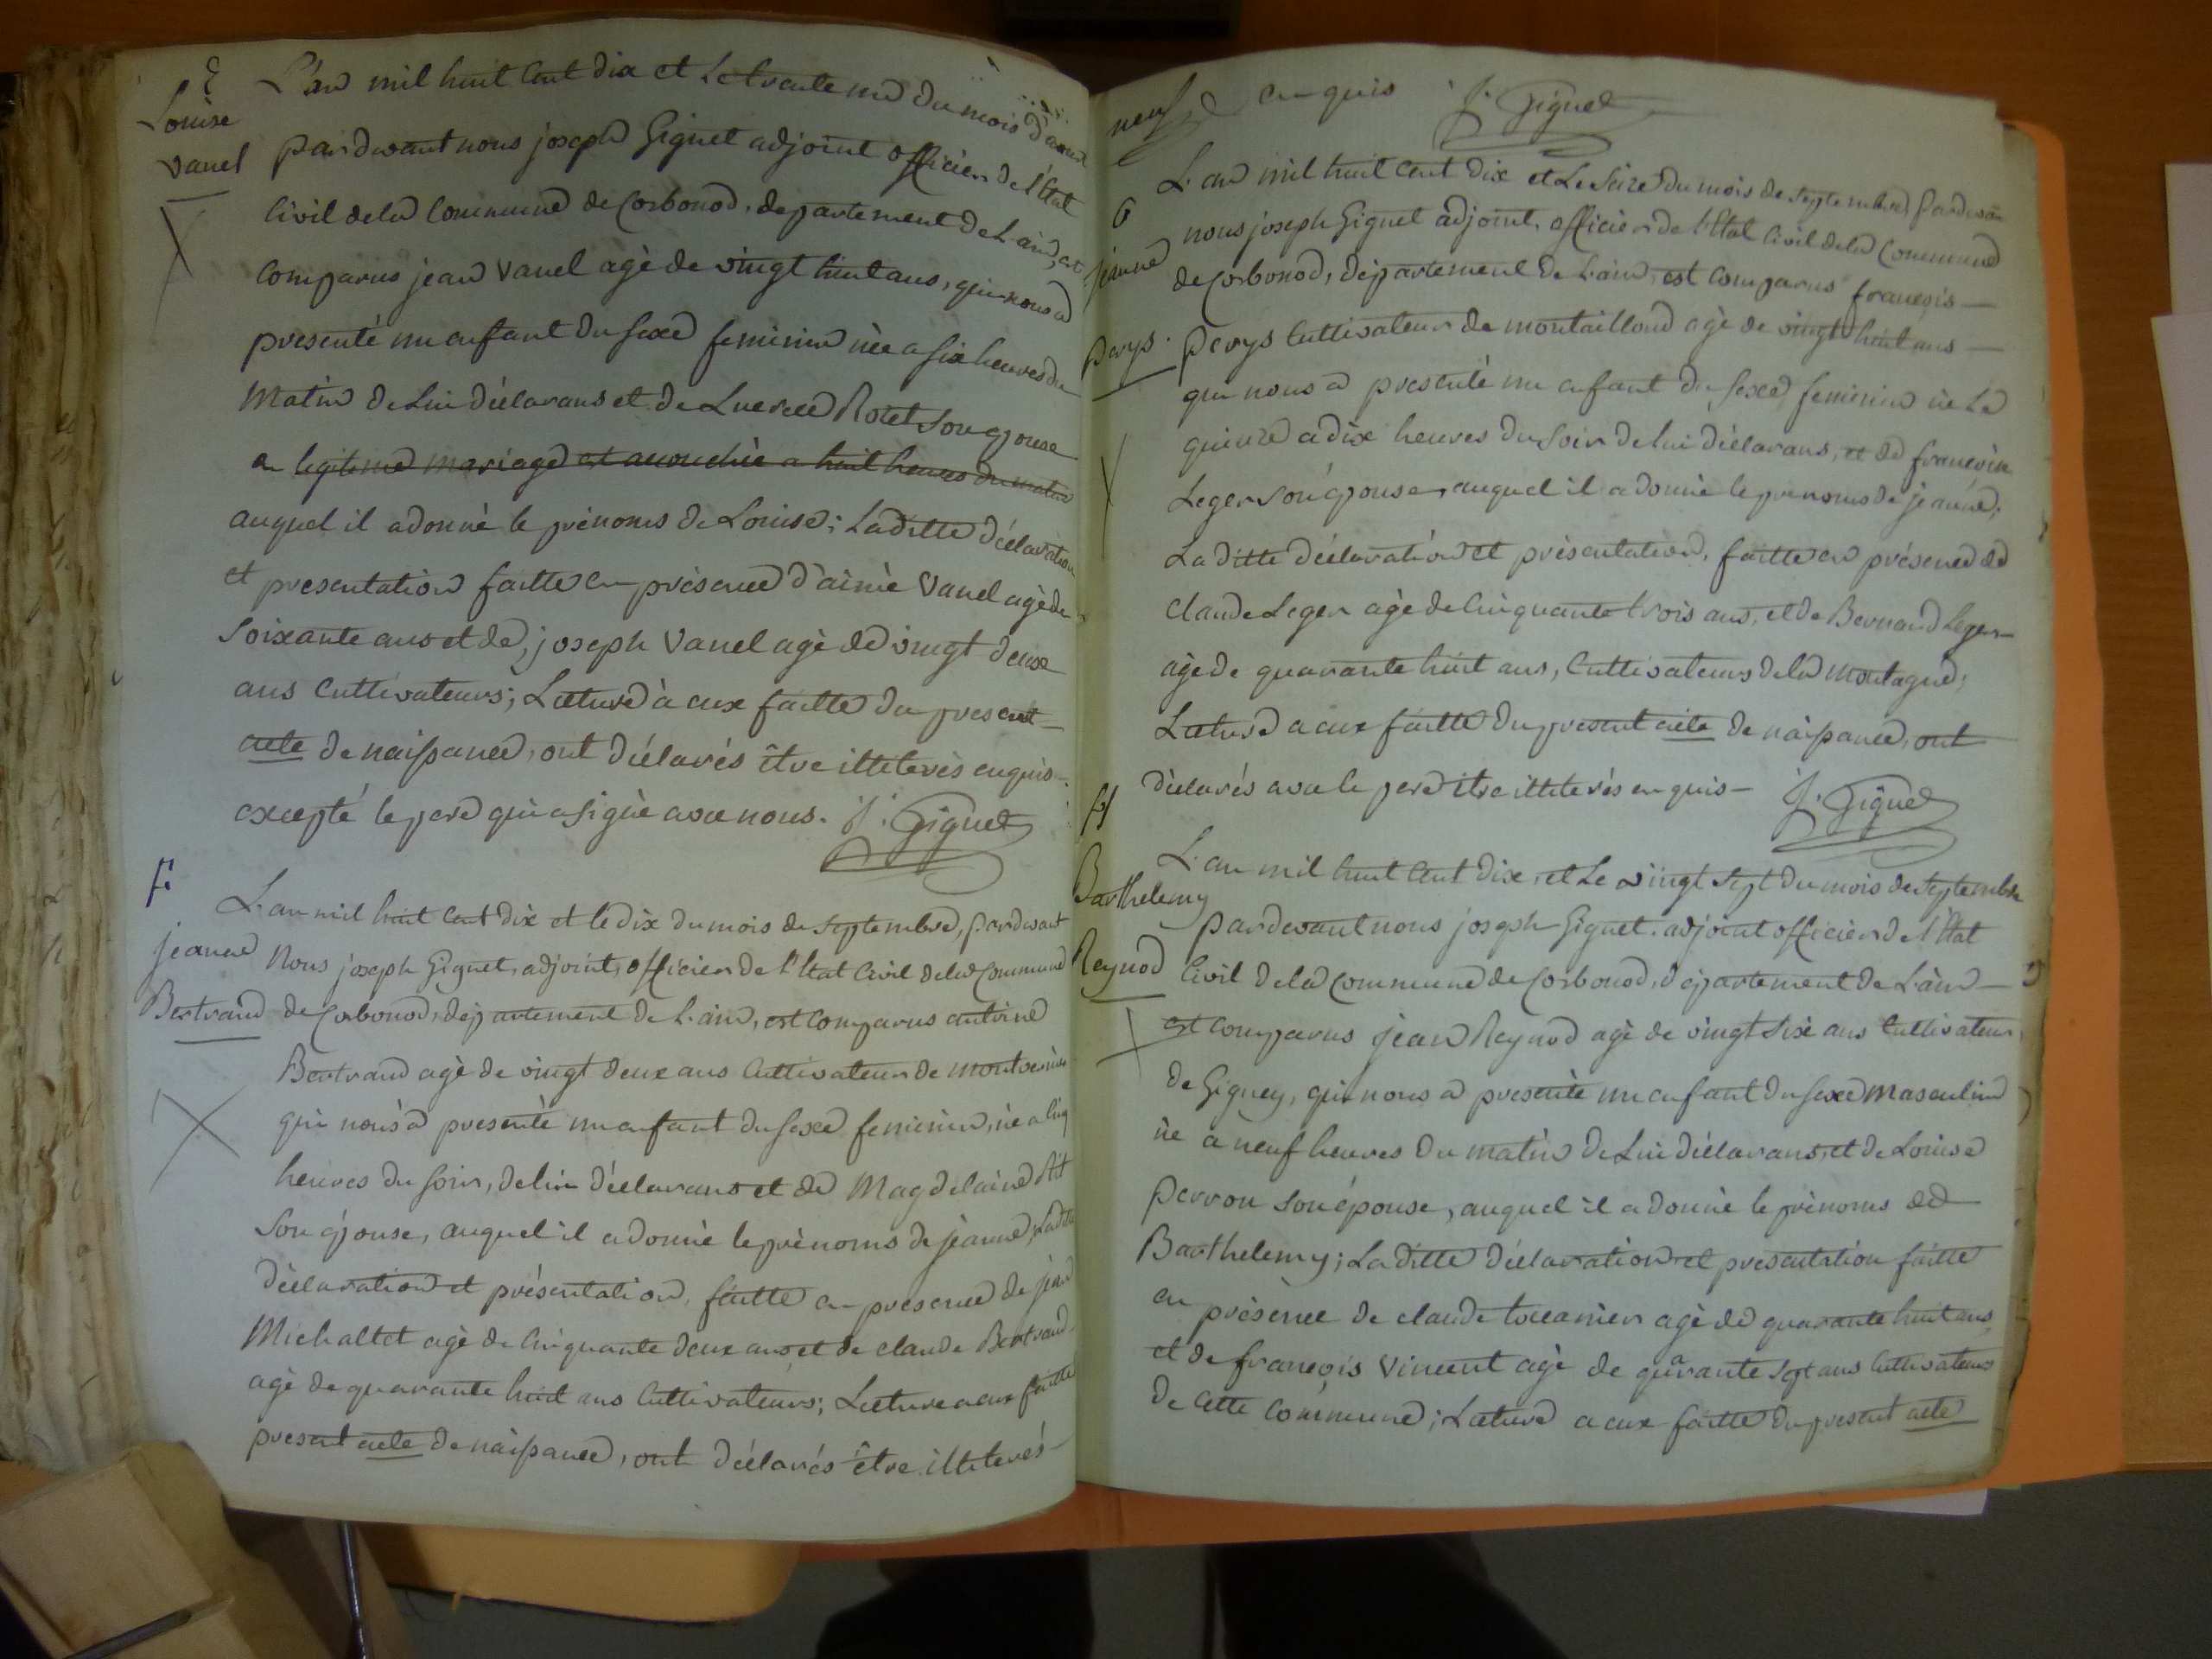 Louise
Vanel
L'an mil huit cent dix et le trente un du mois d'aout
pardevant nous joseph Giguet adjoint officier de l'Etat
Civil dela Commune de Corbonod, departement de L'ain, est
Comparus jean Vanel agè de vingt huit ans, qui nous a
presenté un enfant du sexe feminin nèe a six heures du
Matin de Lui déclarans et de Lucrece Rotet son epouse
en legitime mariage est accouchée a huit heures du matin
auquel il a donnè le prénoms de Louise; Laditte déclaration
et presentation faitte en présence d'aimè Vanel agè de
Soixante ans et de joseph Vanel agè de vingt deux
ans Cultivateurs; Lecture à eux faitte du present
acte de naissance, ont déclarés être illiterès enquis
excepté le pere qui a signè avec nous. J. Giguet
f.
jeanne
Bertrand
L'an mil huit cent dix et le dix du mois de septembre, pardevant
Nous joseph Giguet, adjoint, officier de l'Etat Civil dela Commune
de Corbonod, departement de L'ain, est Comparus antoine
Bertrand agè de vingt deux ans Cultivateur de
qui nous a presentè un enfant du sexe feminin, nè a Cinq
heures du soir, de lui déclarans et de Magdelaine
Son épouse, auquel il a donnè le prènoms de jeanne, Laditte
déclaration et présentation, faitte en presence de jean
Michaltet agè de Cinquante deux ans et de claude Bertrand
agè de quarante huit ans Cultivateurs; Lecture a eux faitte
present acte de naissance, ont déclarés être illiterés
neuf en quis J. Giguet
6
jeanne
perys
L'an mil huit Cent dix et Le seize du mois de septembre pardevan
nous joseph Giguet adjoint, officier de l'Etat Civil dela Commune
de Corbonod, département de L'ain, est Comparus françois
perys Cultivateur de montailloud agè de vingt huit ans
qui nous a presenté un enfant du sexe feminin nè Le
quinze a dix heures du soir de lui déclarans, et de françoise
Leger son épouse, auquel il a donnè le prenoms de jeanne,
La ditte déclaration et présentation, faitte en présence de
Claude Leger agè de Cinquante trois ans, et de Bernand Leger
agè de quarante huit ans, Cultivateurs dela Montagne;
Lecture a eux faitte du present acte de naissance, ont
déclarés avec le pere être illiterés en quis J. Giguet
Barthelemy
Reynod
L'an mil huit Cent dix, et Le vingt sept du mois de septembre
pardevant nous joseph Giguet. adjoint officier de l'Etat
Civil dela Commune de Corbonod, département de L'ain
est Comparus jean Reynod agè de vingt six ans Cultivateur
de Gignez, qui nous a presentè un enfant du sexe masculin
nè a neuf heures du matin de Lui déclarans, et de Louise
perron son épouse, auquel il a donnè le prénoms de
Barthelemy; La ditte déclaration et presentation faitte
en présence de claude toccanier agè de quarante huit ans
et de françois Vincent agè de quarante sept ans Cultivateurs
de Cette Commune; Lecture a eux faitte du present acte